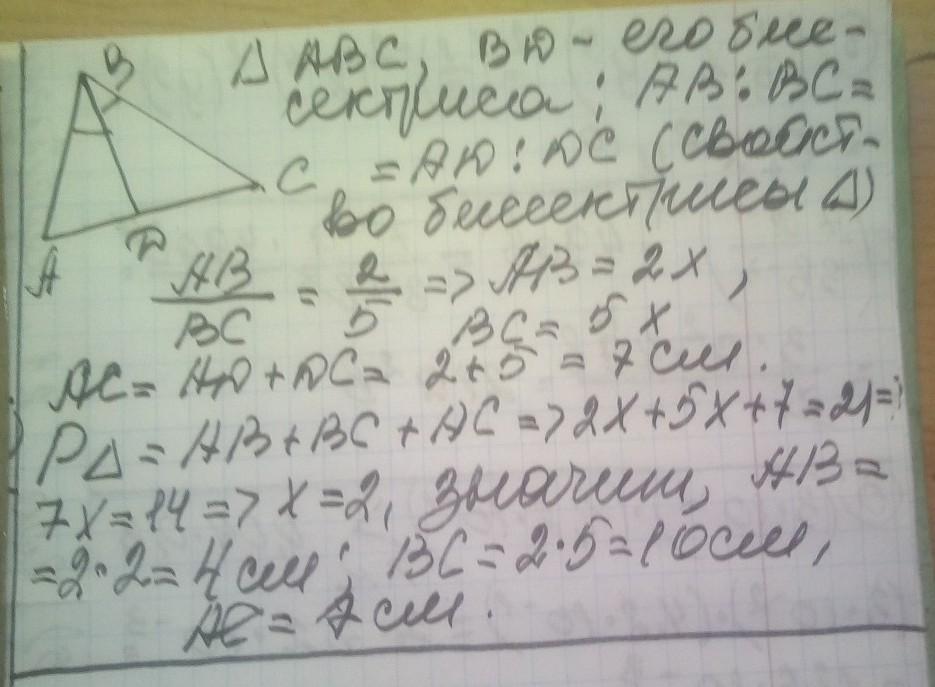 Δ ABC, BD - его бис-
сектриса; AB : BC =
= AD : DC (свойст-
во биссектрисы Δ)
B
C
A
D
AB/BC = 2/5 => AB = 2x,
BC = 5x
AC = AD + DC = 2 + 5 = 7 см.
PΔ = AB + BC + AC => 2x + 5x + 7 = 21 =>
7x = 14 => x = 2, значит, AB =
= 2·2 = 4 см; BC = 2·5 = 10 см,
AC = 7 см.